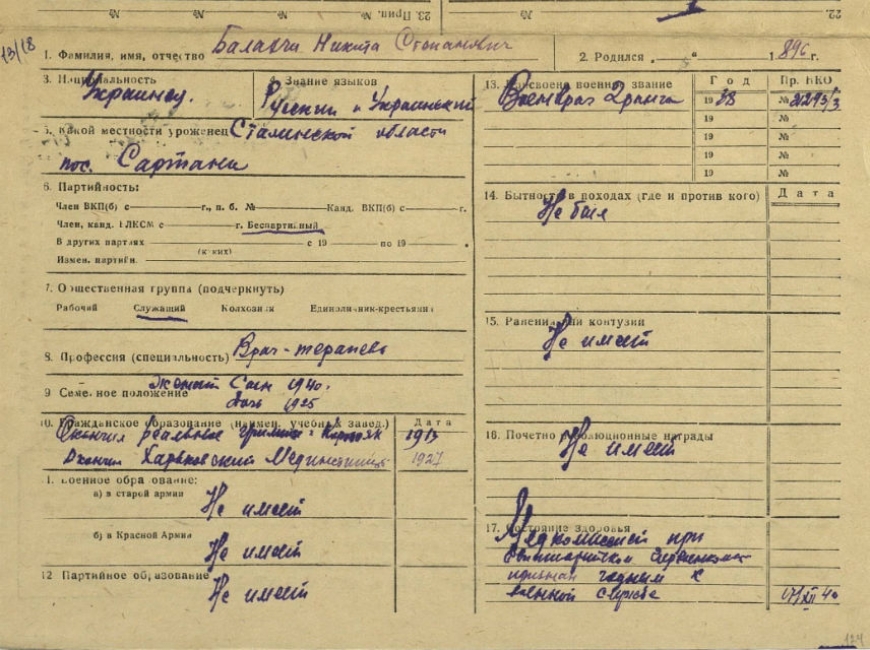 23. Прил. №
22.
13/18
1. Фамилия, имя, отчество Балакчи Никита Степанович
2. Родился „ “ 1896 г.
3. Национальность Украинец.
4. Знание языков Русский и Украинский
5. Какой местности уроженец Сталинской области
пос. Сартана
6. Партийность:
Член ВКП(б) с г., п. б. № Канд. ВКП(б) с г.
Член, канд. ВЛКСМ с г. Беспартийный
В других партиях с 19 по 19 .
(каких)
Измен. партийн.
7. Общественная группа (подчеркнуть)
Рабочий Служащий Колхозник Единоличник-крестьянин
8. Профессия (специальность) Врач-терапевт
9 Семейное положение женат Сын 1940.
дочь 1925
10. Гражданское образование (наимен. учебн. завед.) Дата
Окончил реальное 1917
Окончил Харьковский Мединститут 1927
11. Военное образование:
а) в старой армии
Не имеет
б) в Красной Армии
Не имеет
12 Партийное образование
Не имеет
13. Присвоено военное звание Год Пр. НКО
Военврач 2 ранга 1938 №
19 №
19 №
19 №
19 №
14. Бытность в походах (где и против кого) Дата
Не был
15. Ранения или контузии
Не имеет
16. Почетно революционные награды
Не имеет
17. Состояние здоровья
Медкомиссией при
признан годным к
военной службе XII 40
124